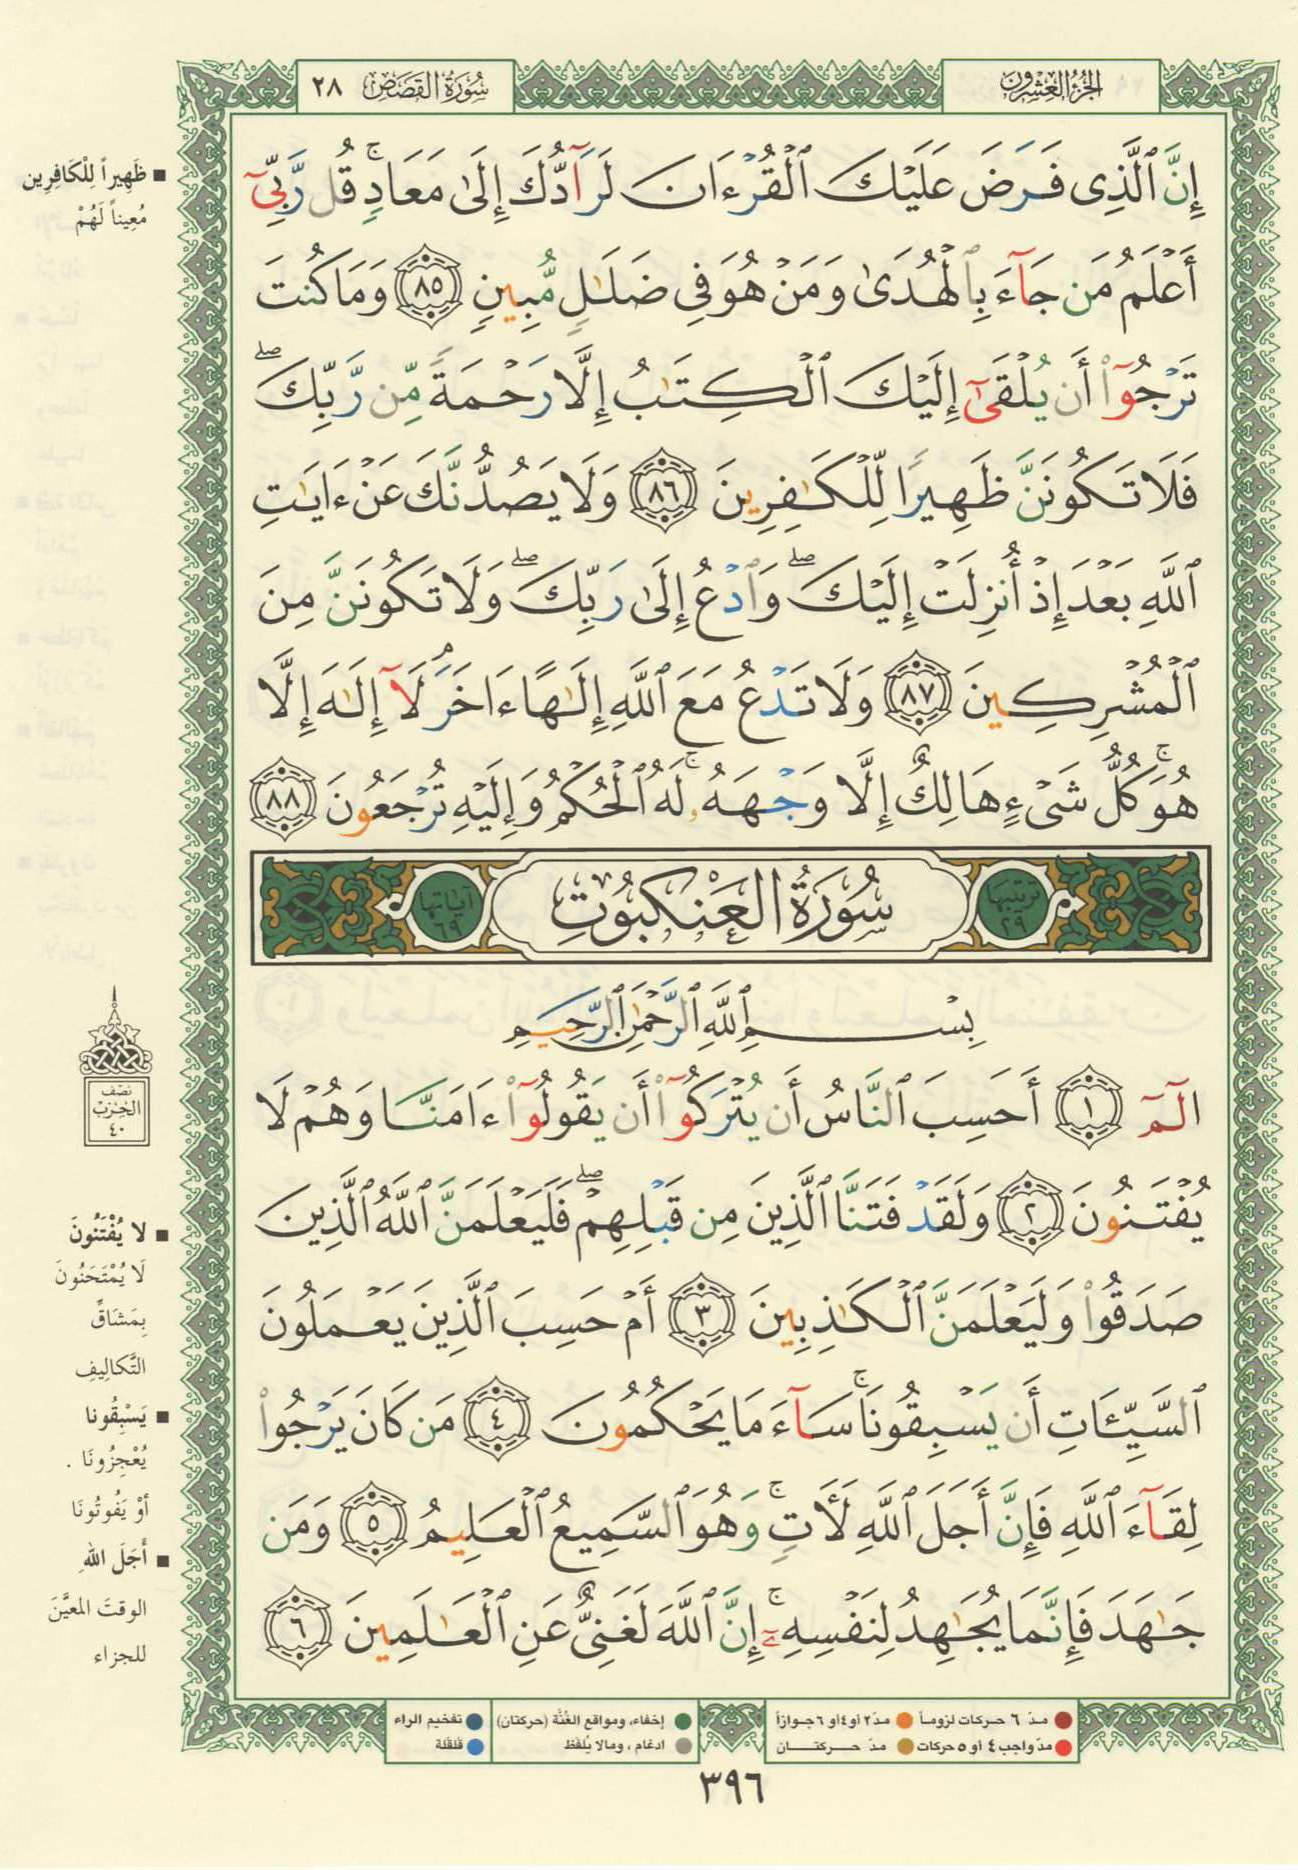 الجزء العشرون
سورة القصص ٢٨
إِنَّ ٱلَّذِى فَرَضَ عَلَيْكَ ٱلْقُرْءَانَ لَرَآدُّكَ إِلَىٰ مَعَادٍ ۚ قُل رَّبِّىٓ
أَعْلَمُ مَن جَآءَ بِٱلْهُدَىٰ وَمَنْ هُوَ فِى ضَلَـٰلٍ مُّبِينٍ ٨٥ وَمَا كُنتَ
تَرْجُوٓا۟ أَن يُلْقَىٰٓ إِلَيْكَ ٱلْكِتَـٰبُ إِلَّا رَحْمَةً مِّن رَّبِّكَ ۖ
فَلَا تَكُونَنَّ ظَهِيرًا لِّلْكَـٰفِرِينَ ٨٦ وَلَا يَصُدُّنَّكَ عَنْ ءَايَـٰتِ
ٱللَّهِ بَعْدَ إِذْ أُنزِلَتْ إِلَيْكَ ۖ وَٱدْعُ إِلَىٰ رَبِّكَ ۖ وَلَا تَكُونَنَّ مِنَ
ٱلْمُشْرِكِينَ ٨٧ وَلَا تَدْعُ مَعَ ٱللَّهِ إِلَـٰهًا ءَاخَرَ ۘ لَآ إِلَـٰهَ إِلَّا
هُوَ ۚ كُلُّ شَىْءٍ هَالِكٌ إِلَّا وَجْهَهُۥ ۚ لَهُ ٱلْحُكْمُ وَإِلَيْهِ تُرْجَعُونَ ٨٨
ترتيبها ٢٩ سُورَةُ العَنْكبُوتِ آياتها ٦٩
بِسْمِ ٱللَّهِ ٱلرَّحْمَـٰنِ ٱلرَّحِيمِ
الٓمٓ ١ أَحَسِبَ ٱلنَّاسُ أَن يُتْرَكُوٓا۟ أَن يَقُولُوٓا۟ ءَامَنَّا وَهُمْ لَا
يُفْتَنُونَ ٢ وَلَقَدْ فَتَنَّا ٱلَّذِينَ مِن قَبْلِهِمْ ۖ فَلَيَعْلَمَنَّ ٱللَّهُ ٱلَّذِينَ
صَدَقُوا۟ وَلَيَعْلَمَنَّ ٱلْكَـٰذِبِينَ ٣ أَمْ حَسِبَ ٱلَّذِينَ يَعْمَلُونَ
ٱلسَّيِّـَٔاتِ أَن يَسْبِقُونَا ۚ سَآءَ مَا يَحْكُمُونَ ٤ مَن كَانَ يَرْجُوا۟
لِقَآءَ ٱللَّهِ فَإِنَّ أَجَلَ ٱللَّهِ لَـَٔاتٍ ۚ وَهُوَ ٱلسَّمِيعُ ٱلْعَلِيمُ ٥ وَمَن
جَـٰهَدَ فَإِنَّمَا يُجَـٰهِدُ لِنَفْسِهِۦٓ ۚ إِنَّ ٱللَّهَ لَغَنِىٌّ عَنِ ٱلْعَـٰلَمِينَ ٦
ظَهِيراً لِلْكَافِرِين
مُعِيناً لَهُمْ
نصف
الحزب
٤٠
لا يُفْتَنُونَ
لَا يُمْتَحَنُونَ
بِمَشَاقِّ
التَّكالِيفِ
يَسْبِقُونا
يُعْجِزُونَا .
أوْ يَفُوتُونَا
أَجَلَ اللهِ
الوقتَ المعيَّنَ
للجزاء
مدّ ٦ حركات لزوماً مدّ ٢ أو ٤ أو ٦ جوازاً
مدّ واجب ٤ أو ٥ حركات مدّ حركتان
إخفاء، ومواقع الغُنَّة (حركتان) تفخيم الراء
ادغام ، ومالا يُلفَظ قلقلة
٣٩٦